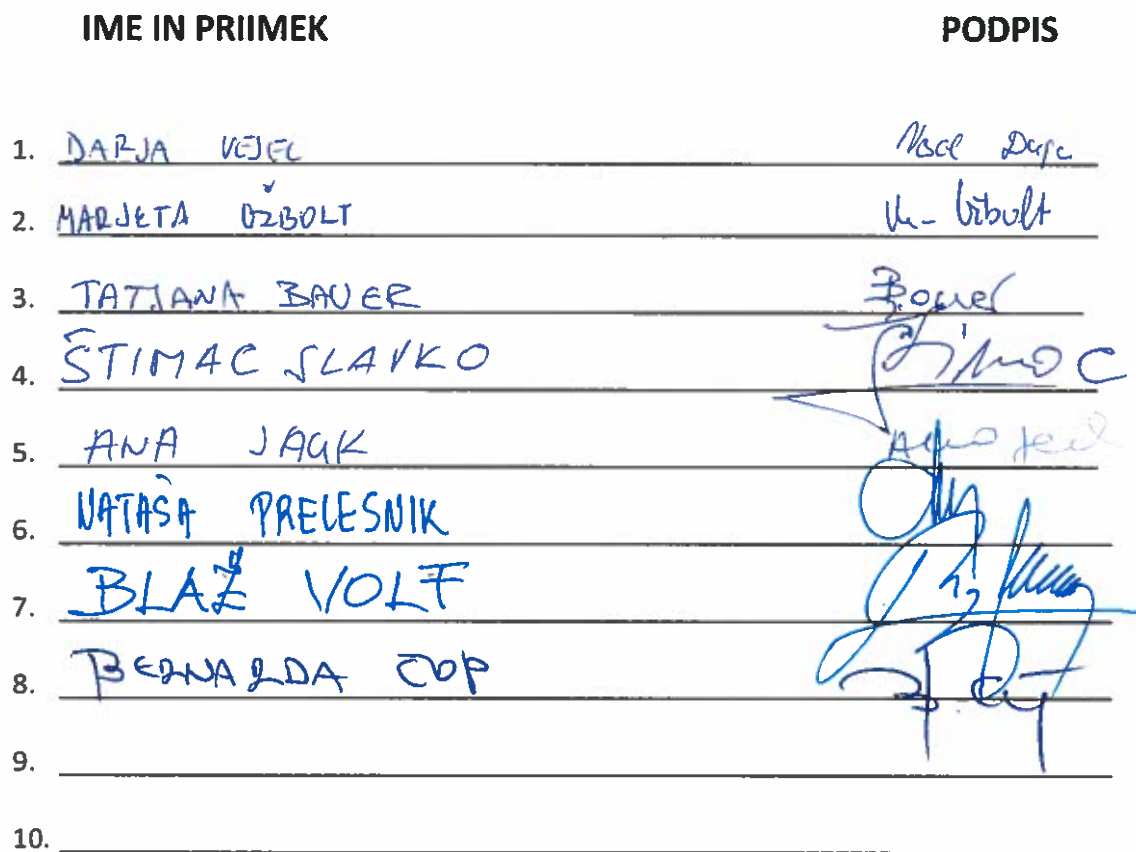 IME IN PRIIMEK PODPIS
1. DARJA VEJEC
2. MARJETA OŽBOLT
3. TATJANA BAUER Bauer
4. ŠTIMAC SLAVKO
5. ANA JAGK
6. NATAŠA PRELESNIK
7. BLAŽ VOLF
8. BERNARDA ČOP
9.
10.